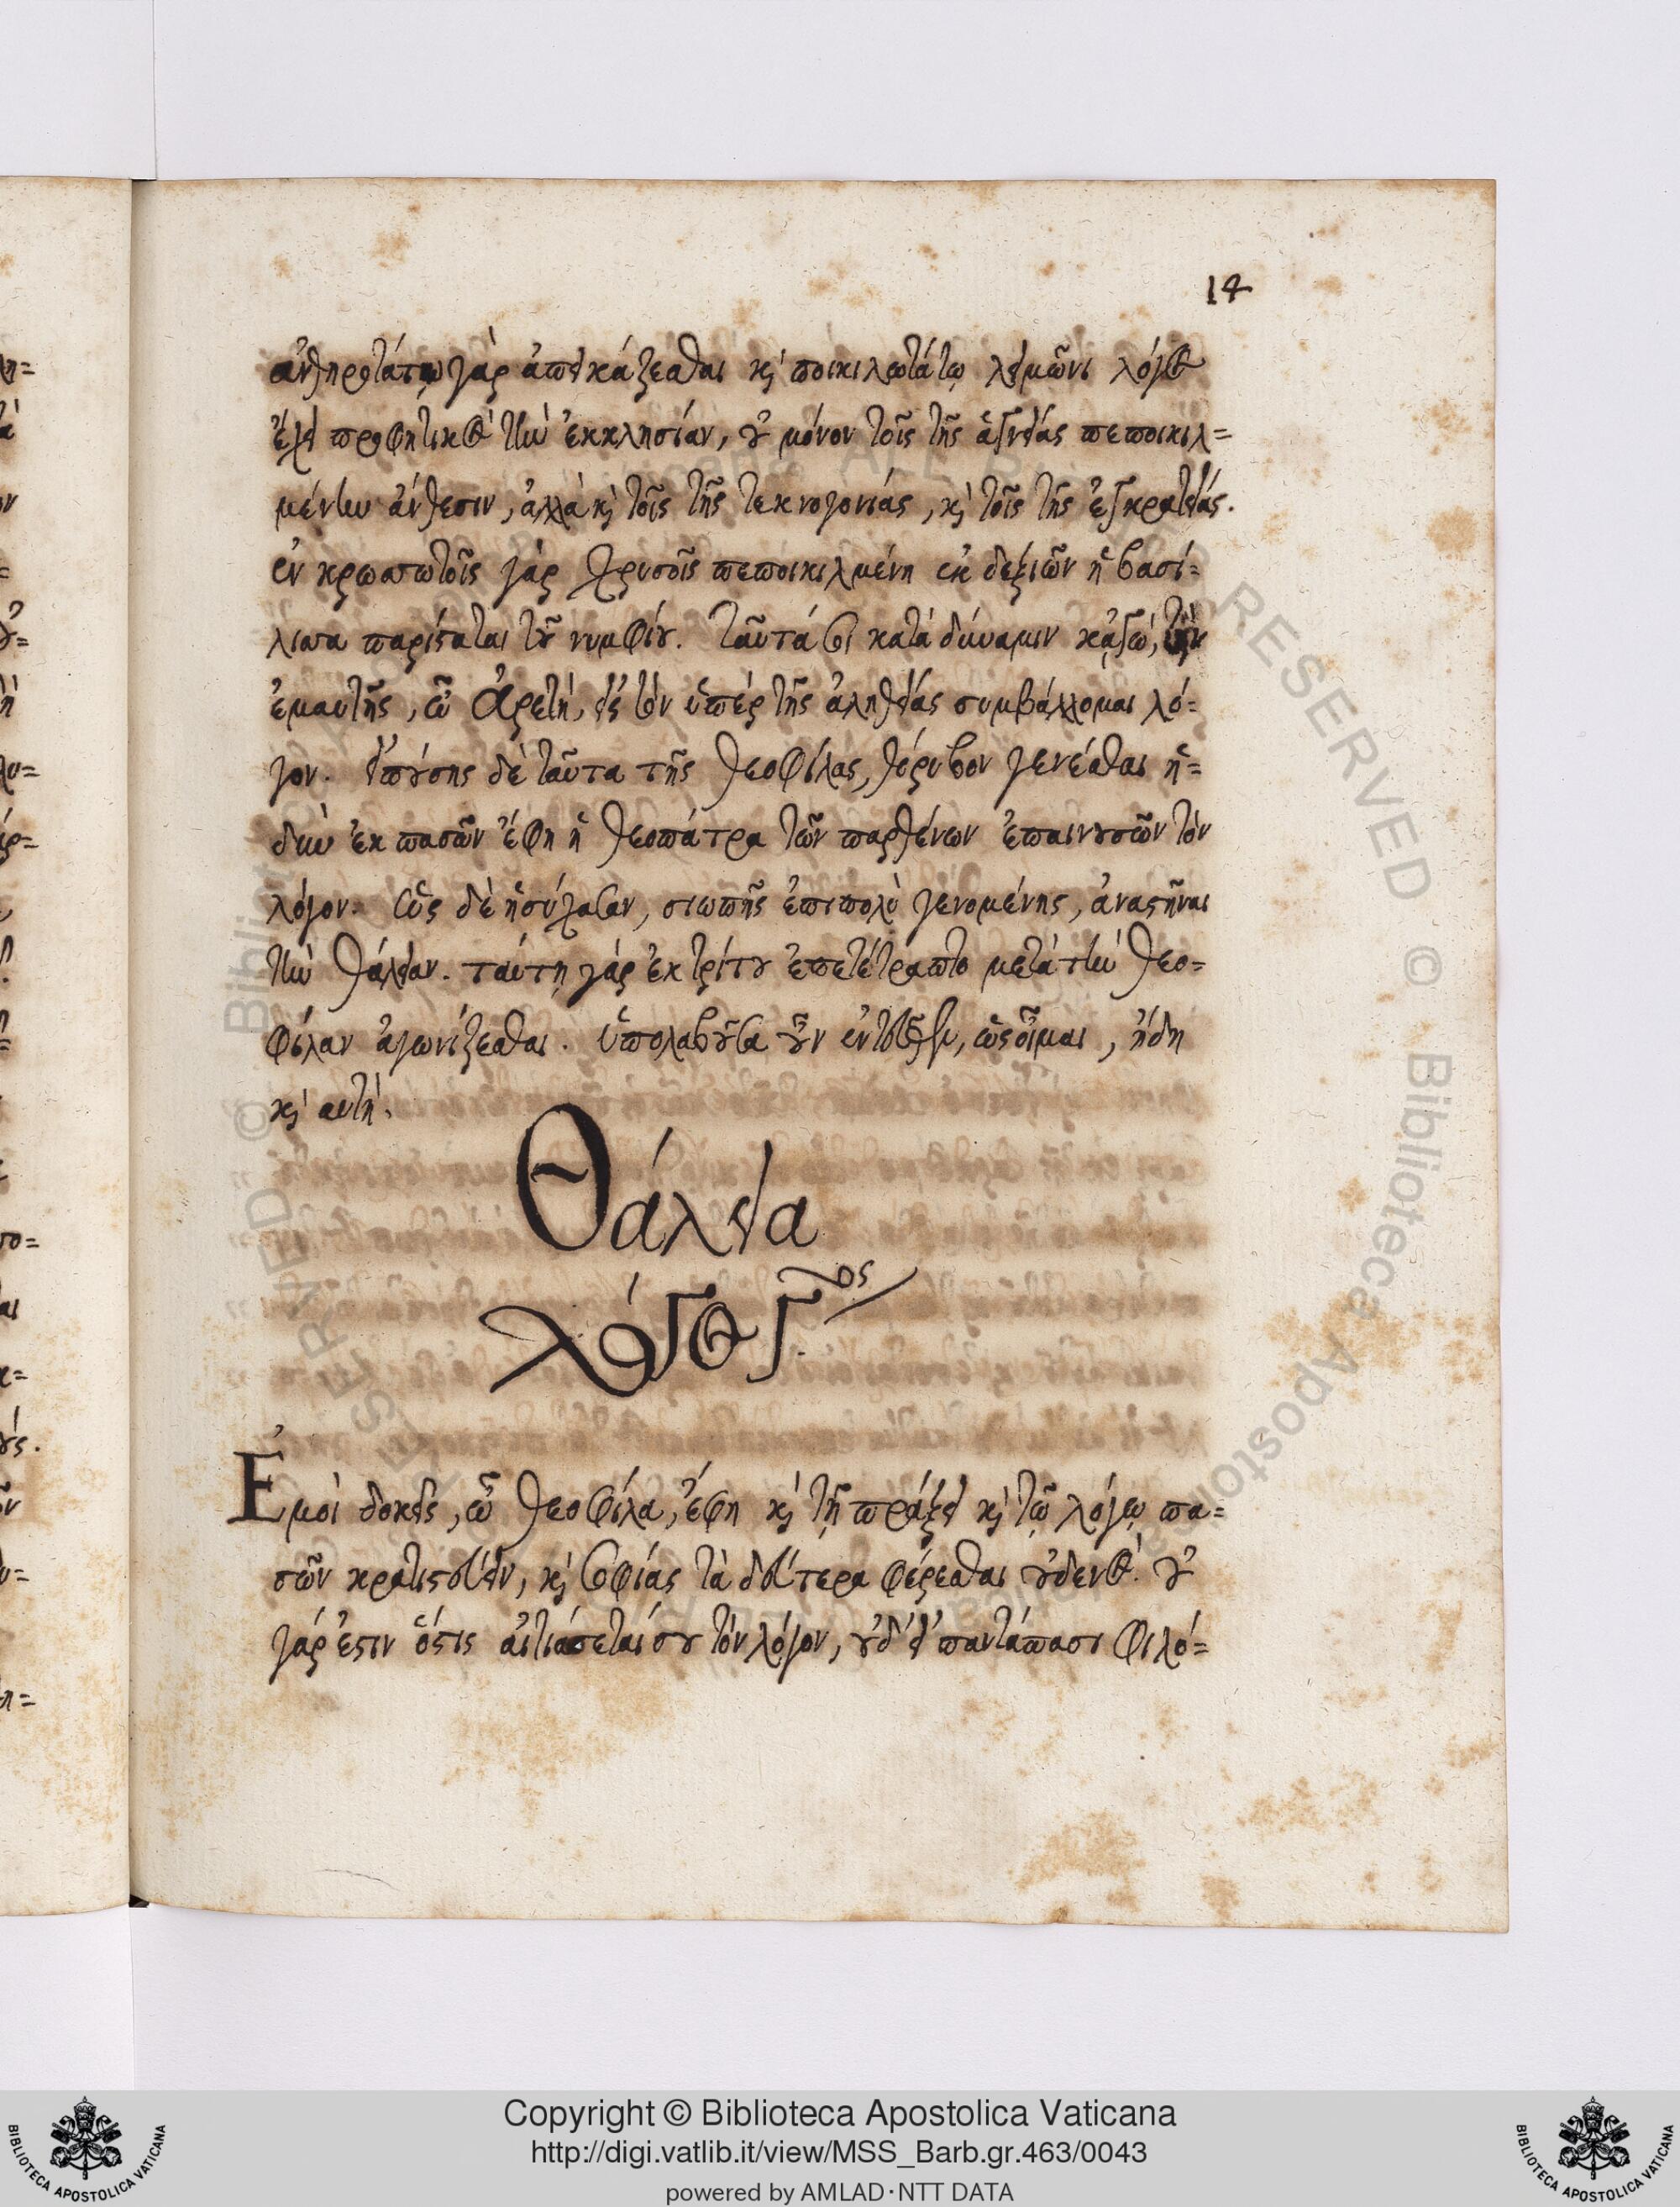 14
ἀνθηροτάτῳ γὰρ ἀπεικάζεσθαι κὶ ποικιλωτάτῳ λειμῶνι λόγος
ἔχει προφητικὸς τὴν ἐκκλησίαν, οὐ μόνον τοῖς τῆς ἁγνείας πεποικιλ=
μένην ἄνθεσιν, ἀλλὰ κὶ τοῖς τῆς τεκνογονίας, κὶ τοῖς τῆς ἐγκρατείας.
ἐν κροσσωτοῖς γὰρ χρυσοῖς πεποικιλμένη ἐκ δεξιῶν ἡ βασί=
λισσα παρίσταται τοῦ νυμφίου. ταῦτά σοι κατὰ δύναμιν κᾀγὼ,
ἐμαυτῆς, ὦ Ἀρετὴ, εἰς τὸν ὑπὲρ τῆς ἀληθείας συμβάλλομαι λό=
γον. εἰπούσης δὲ ταῦτα τῆς Θεοφίλας, θόρυβον γενέσθαι ἡ=
δὺν ἐκ πασῶν ἔφη ἡ Θεοπάτρα τῶν παρθένων ἐπαινουσῶν τὸν
λόγον. ὡς δὲ ἡσύχασαν, σιωπῆς ἐπιπολὺ γενομένης, ἀναστῆναι
τὴν Θάλειαν. ταύτῃ γὰρ ἐκ τρίτου ἐπετέτραπτο μετὰ τὴν Θεο=
φίλαν ἀγωνίζεσθαι. ὑπολαβοῦσα οὖν ἐντεῦθεν, ὡς οἶμαι, ἤδη
κὶ αυτὴ.
Θάλεια
λόγος γος.
Ἐμοὶ δοκεῖς, ὦ Θεοφίλα, ἔφη κὶ τῇ πράξει κὶ τῷ λόγῳ πα=
σῶν κρατιστεύειν, κὶ σοφίας τὰ δεύτερα φέρεσθαι οὐδενὸς. οὐ
γάρ ἐστιν ὅστις αἰτιάσεταί σου τὸν λόγον, οὐδ' εἰ παντάπασι φιλό=
Copyright © Biblioteca Apostolica Vaticana
http://digi.vatlib.it/view/MSS_Barb.gr.463/0043
powered by AMLAD·NTT DATA
BIBLIOTECA APOSTOLICA VATICANA
BIBLIOTECA APOSTOLICA VATICANA